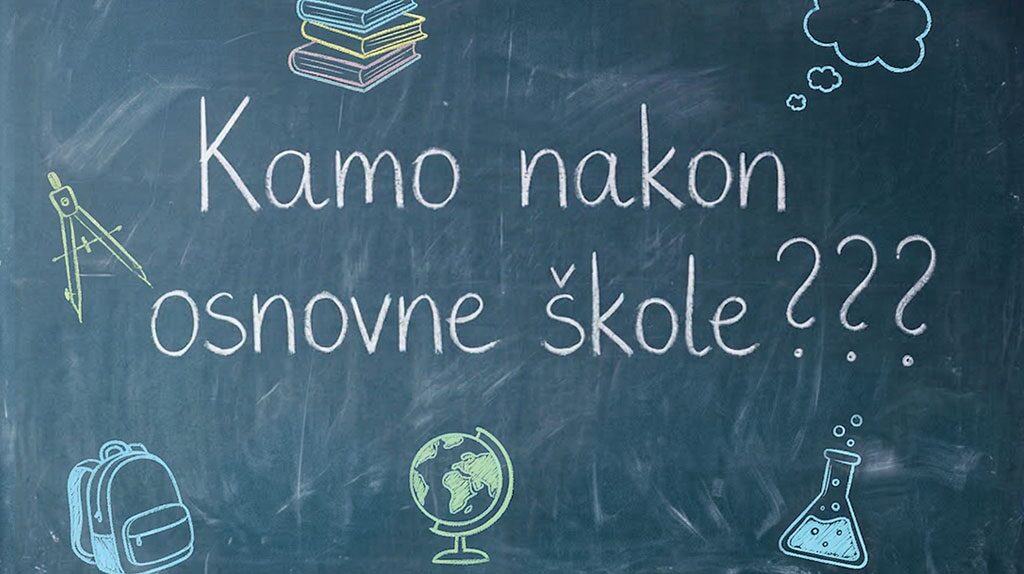 Kamo nakon
osnovne škole???